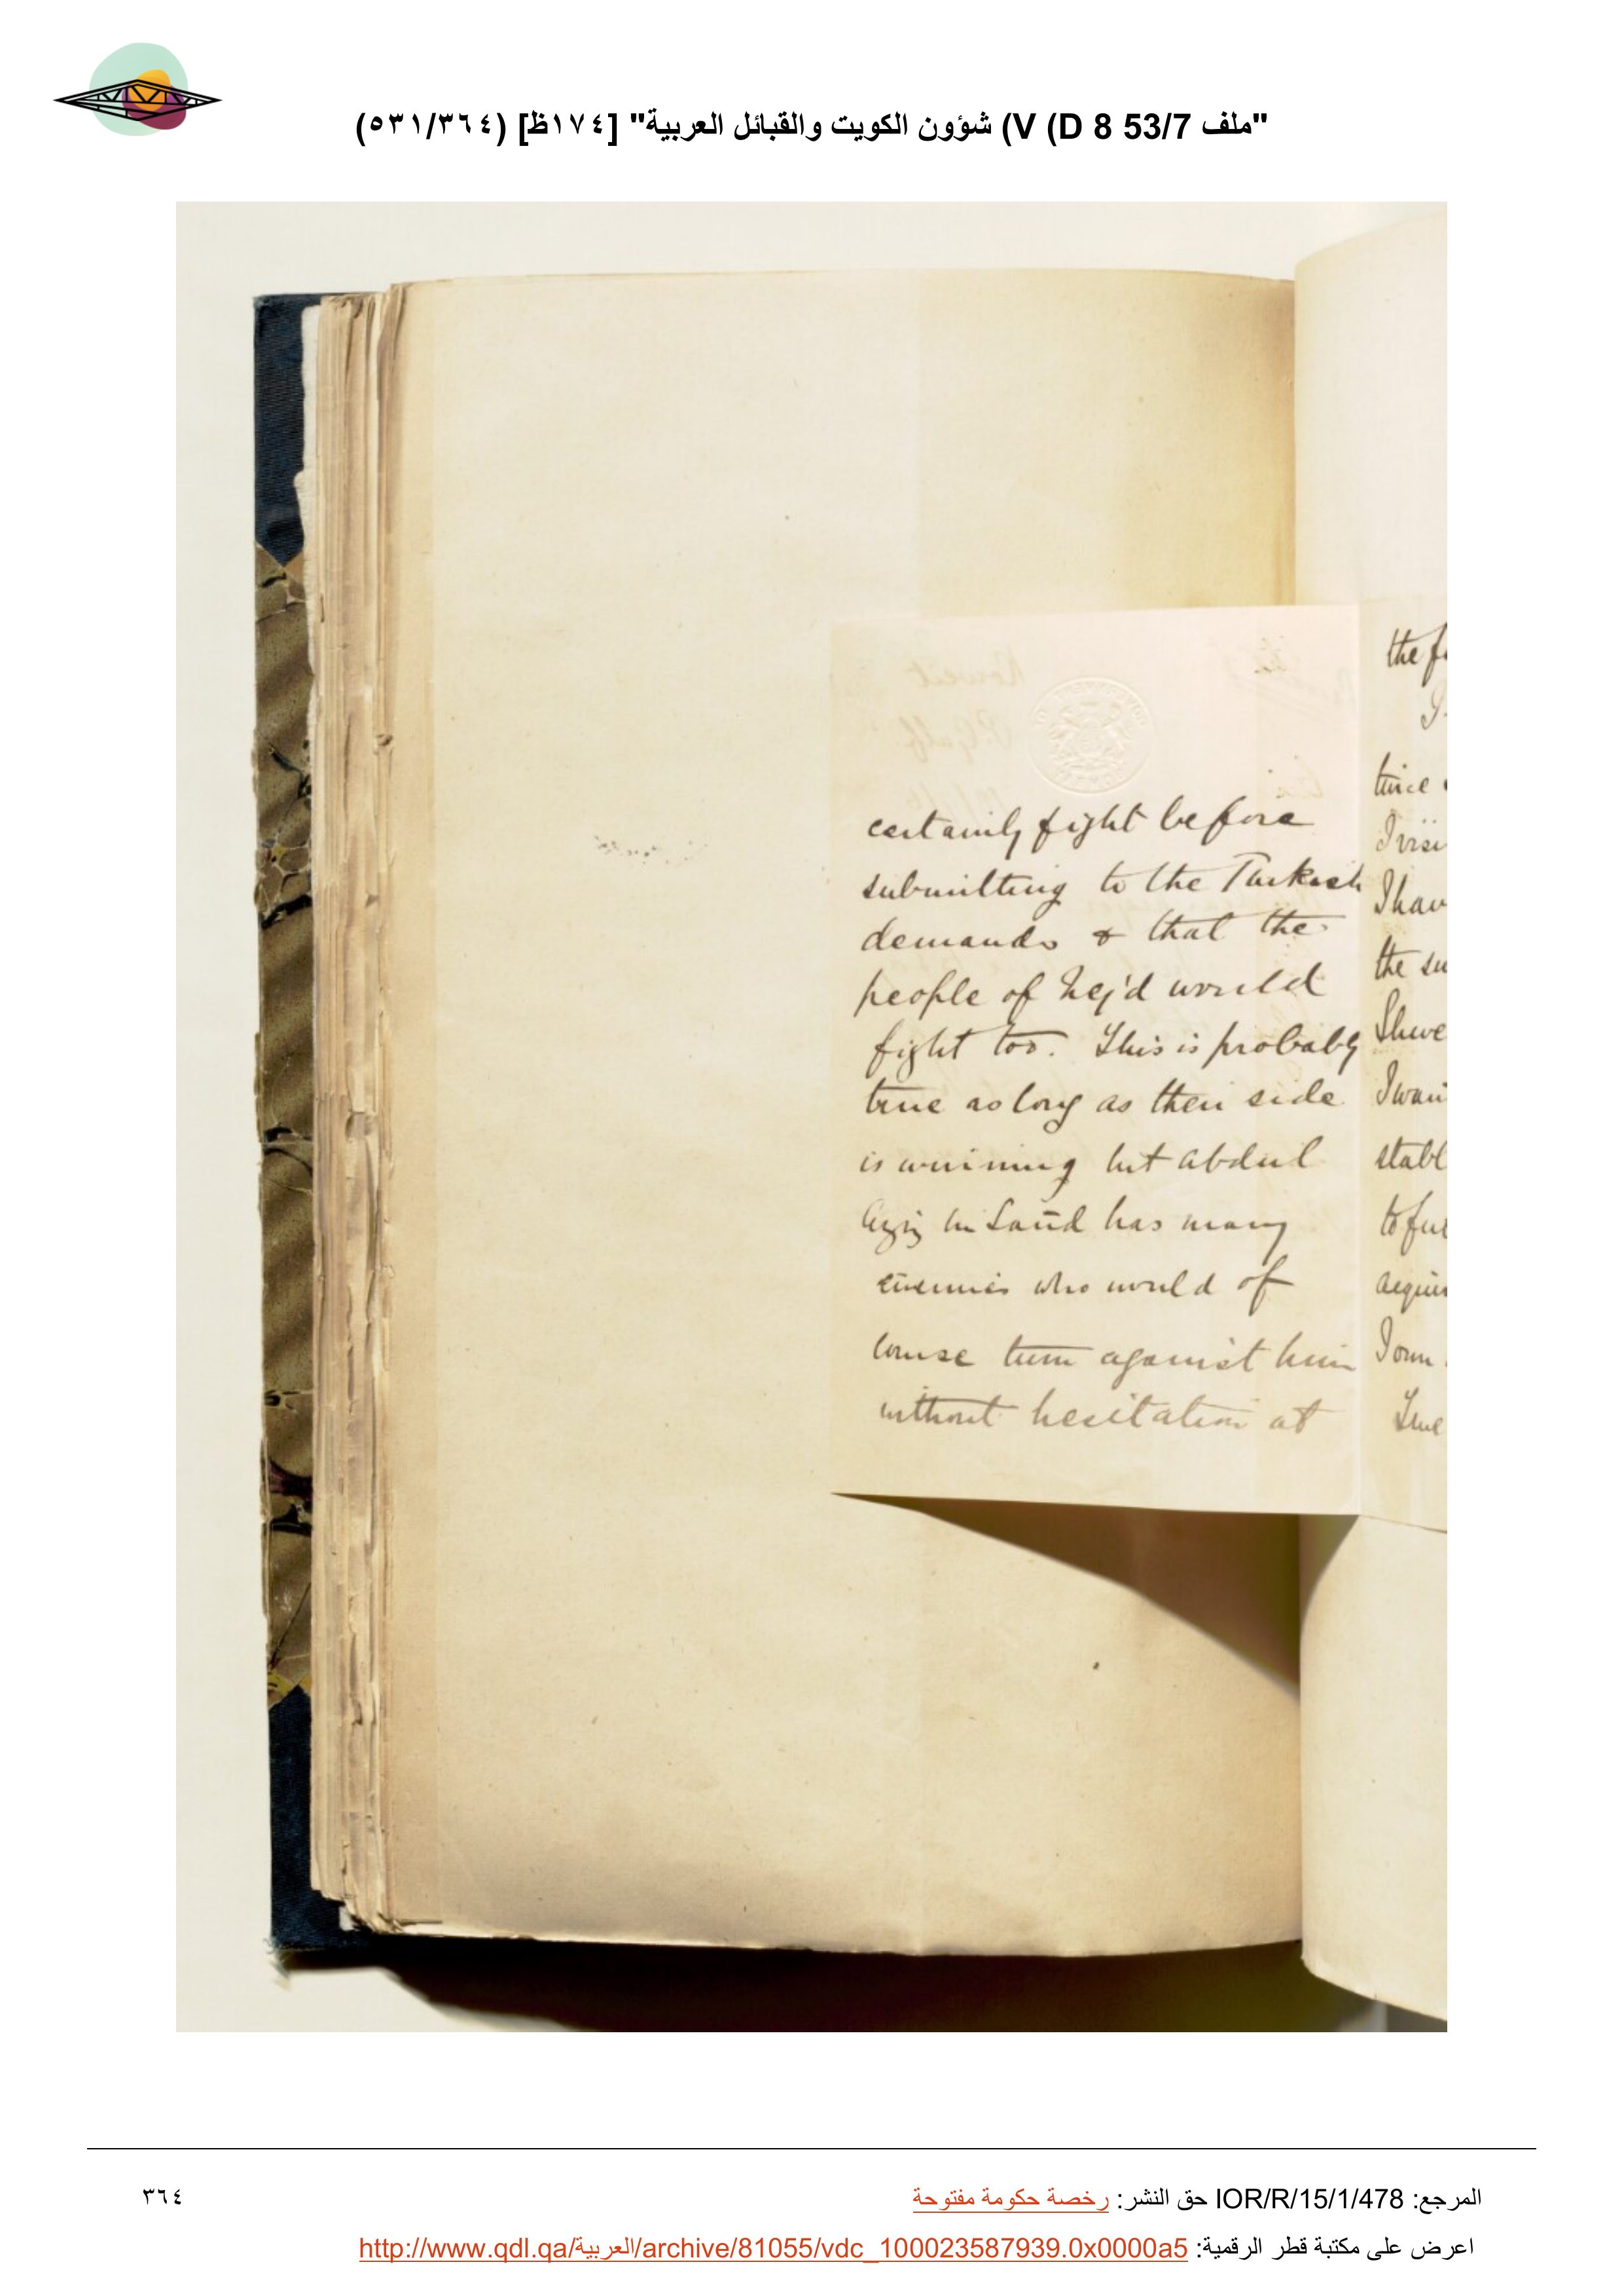 "ملف 53/7 D 8) V) شؤون الكويت والقبائل العربية" [١٧٤ظ] (٥٣١/٣٦٤)
certainly fight before
submitting to the Turkish
demands & that the
people of Nej'd would
fight too. This is probably
true as long as their side
is winning but Abdul
Aziz bin Saūd has many
enemies who would of
course turn against him
without hesitation at
the f
twice
I hav
the su
I wan
stabl
to fu
acqui
I own
المرجع: IOR/R/15/1/478 حق النشر: رخصة حكومة مفتوحة
٣٦٤
اعرض على مكتبة قطر الرقمية: http://www.qdl.qa/العربية/archive/81055/vdc_100023587939.0x0000a5